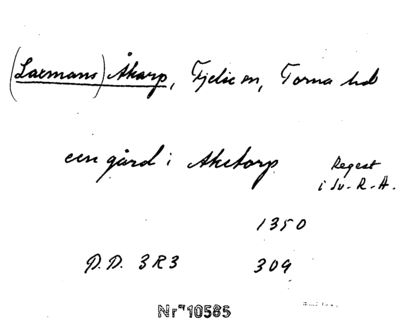 (Laxmans) Åkarp, Fjelie sn, Torna hd
een gård i Aketorp
Regest
i Sv. R. A.
1350
D.D. 3R3 309
Nr 10585